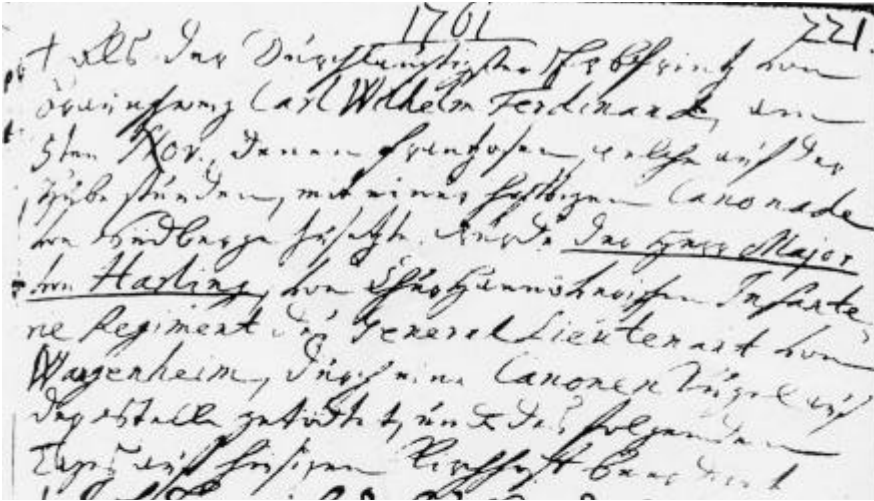 1761 221.
† Als der Durchlauchtigste Erbprintz von
Braunschweig Carl Wilhelm Ferdinand, am
5ten Nov. denen Frantzosen, welche auf der
Hube stunden, mit einer hefftigen Canonade
von zusetzte. wurde der Herr Major
von Harling, von Chur Hannöverischen Infante
rie Regiment des General Lieutenant von
Wangenheim, durch eine Canonen Kugel auf
der Stelle getödtet, und des folgenden
Tages auf hiesigen Kirchhoff